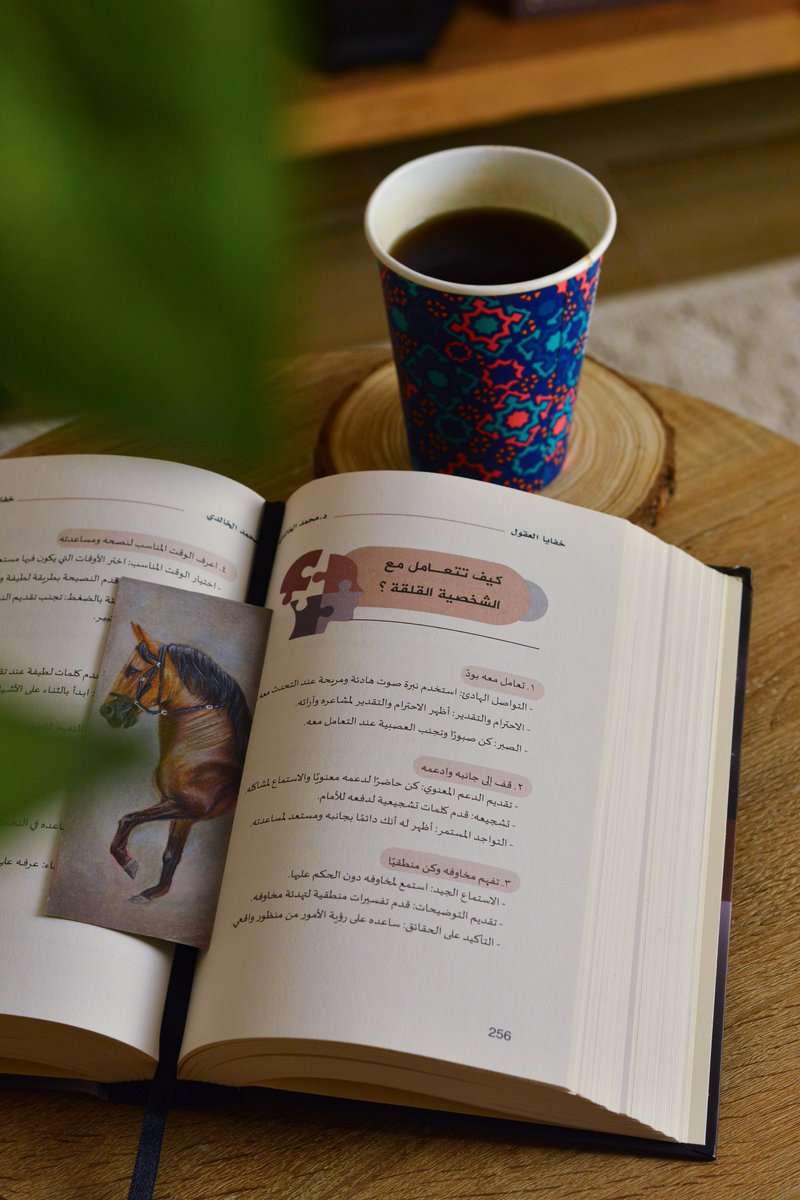 خفايا العقول
د.محمد الخالدي
كيف تتعـــامل مع
الشخصية القلقة ؟
١. تعامل معه بودّ
- التواصل الهادئ: استخدم نبرة صوت هادئة ومريحة عند التحدث معه
- الاحترام والتقدير: أظهر الاحترام والتقدير لمشاعره وآرائه.
- الصبر: كن صبورًا وتجنب العصبية عند التعامل معه.
٢. قف إلى جانبه وادعمه
- تقديم الدعم المعنوي: كن حاضرًا لدعمه معنويًا والاستماع لمشاكله
- تشجيعه: قدم كلمات تشجيعية لدفعه للأمام.
- التواجد المستمر: أظهر له أنك دائمًا بجانبه ومستعد لمساعدته.
٣. تفهم مخاوفه وكن منطقيًا
- الاستماع الجيد: استمع لمخاوفه دون الحكم عليها.
- تقديم التوضيحات: قدم تفسيرات منطقية لتهدئة مخاوفه.
- التأكيد على الحقائق: ساعده على رؤية الأمور من منظور واقعي
256
محمد الخالدي
٤. اعرف الوقت المناسب لنصحه ومساعدته
- اختيار الوقت المناسب: اختر الأوقات التي يكون فيها
قدم النصيحة بطريقة لطيفة
بالضغط: تجنب تقديم
قدم كلمات لطيفة عند
ابدأ بالثناء على
ساعده في
عرفه على